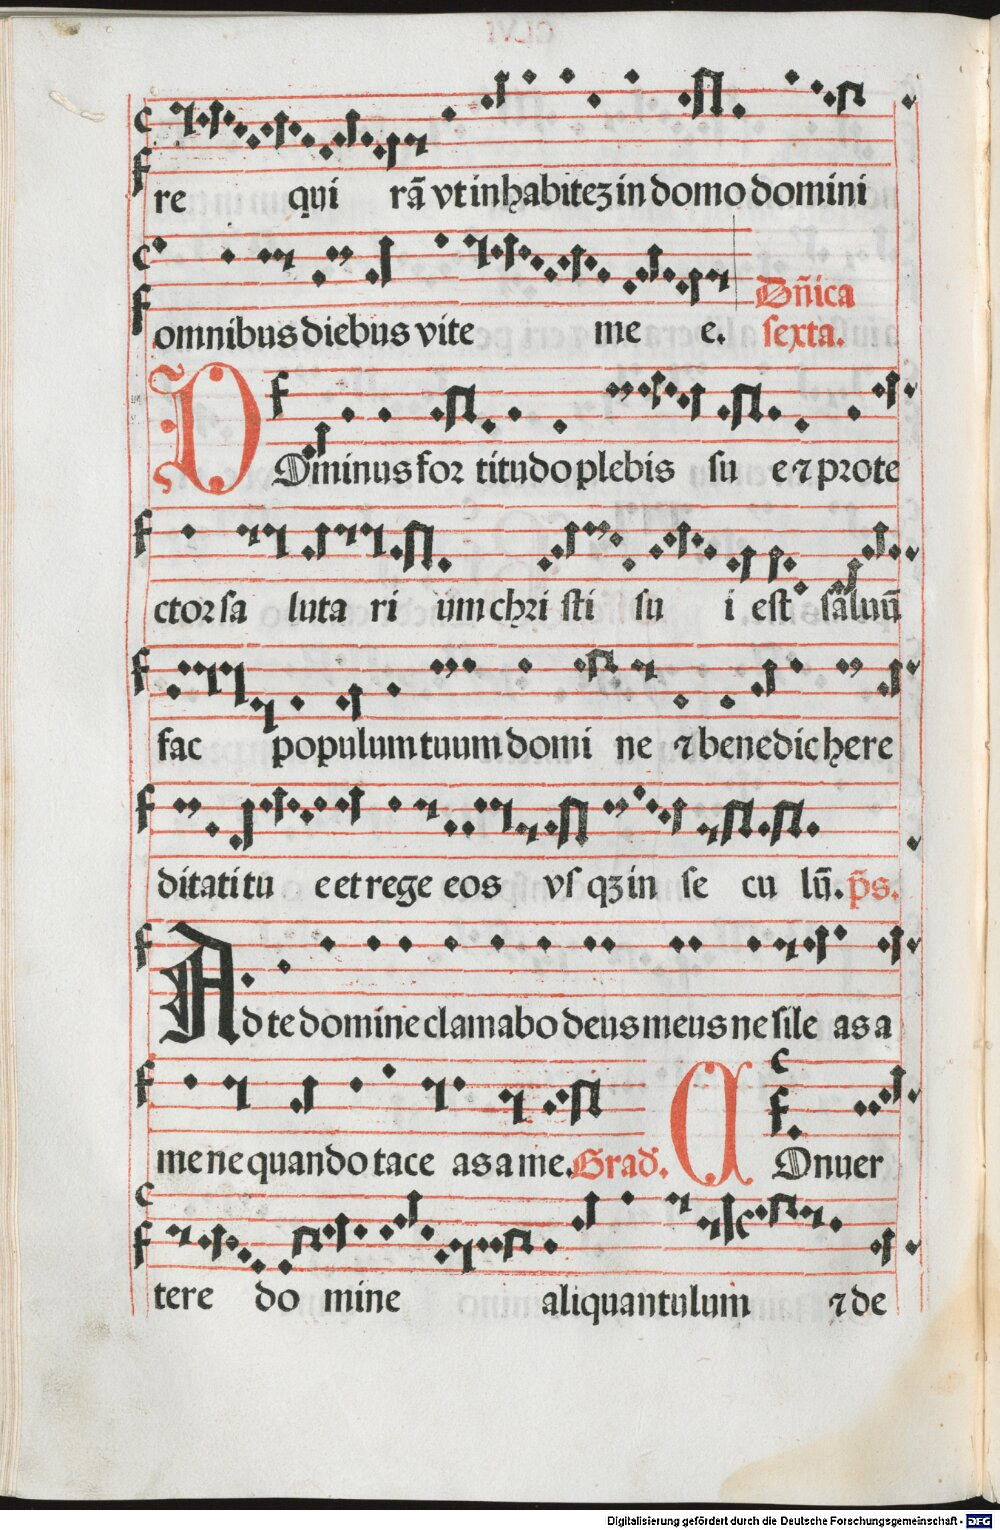 re qui rã vt inhabiteꝫ in domo domini
omnibus diebus vite me e. Dñica
sexta.
DOminus for titudo plebis su e ⁊ prote
ctor sa luta ri um chri sti su i est saluũ
fac populum tuum domi ne ⁊ benedic here
ditati tu e et rege eos vsqꝫ in se cu lũ. p̃s.
Ad te domine clamabo deus meus ne sile as a
me ne quando tace as a me. Grad. COnuer
tere do mine aliquantulum ⁊ de
Digitalisierung gefördert durch die Deutsche Forschungsgemeinschaft - DFG